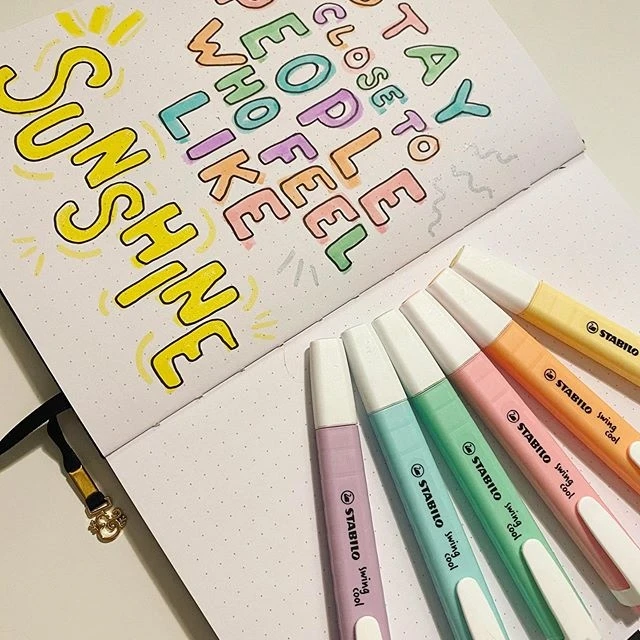 STAY
CLOSE TO
PEOPLE
WHO FEEL
LIKE
SUNSHINE
STABILO swing cool
STABILO swing cool
STABILO swing cool
STABILO swing cool
STABILO swing cool
STABILO